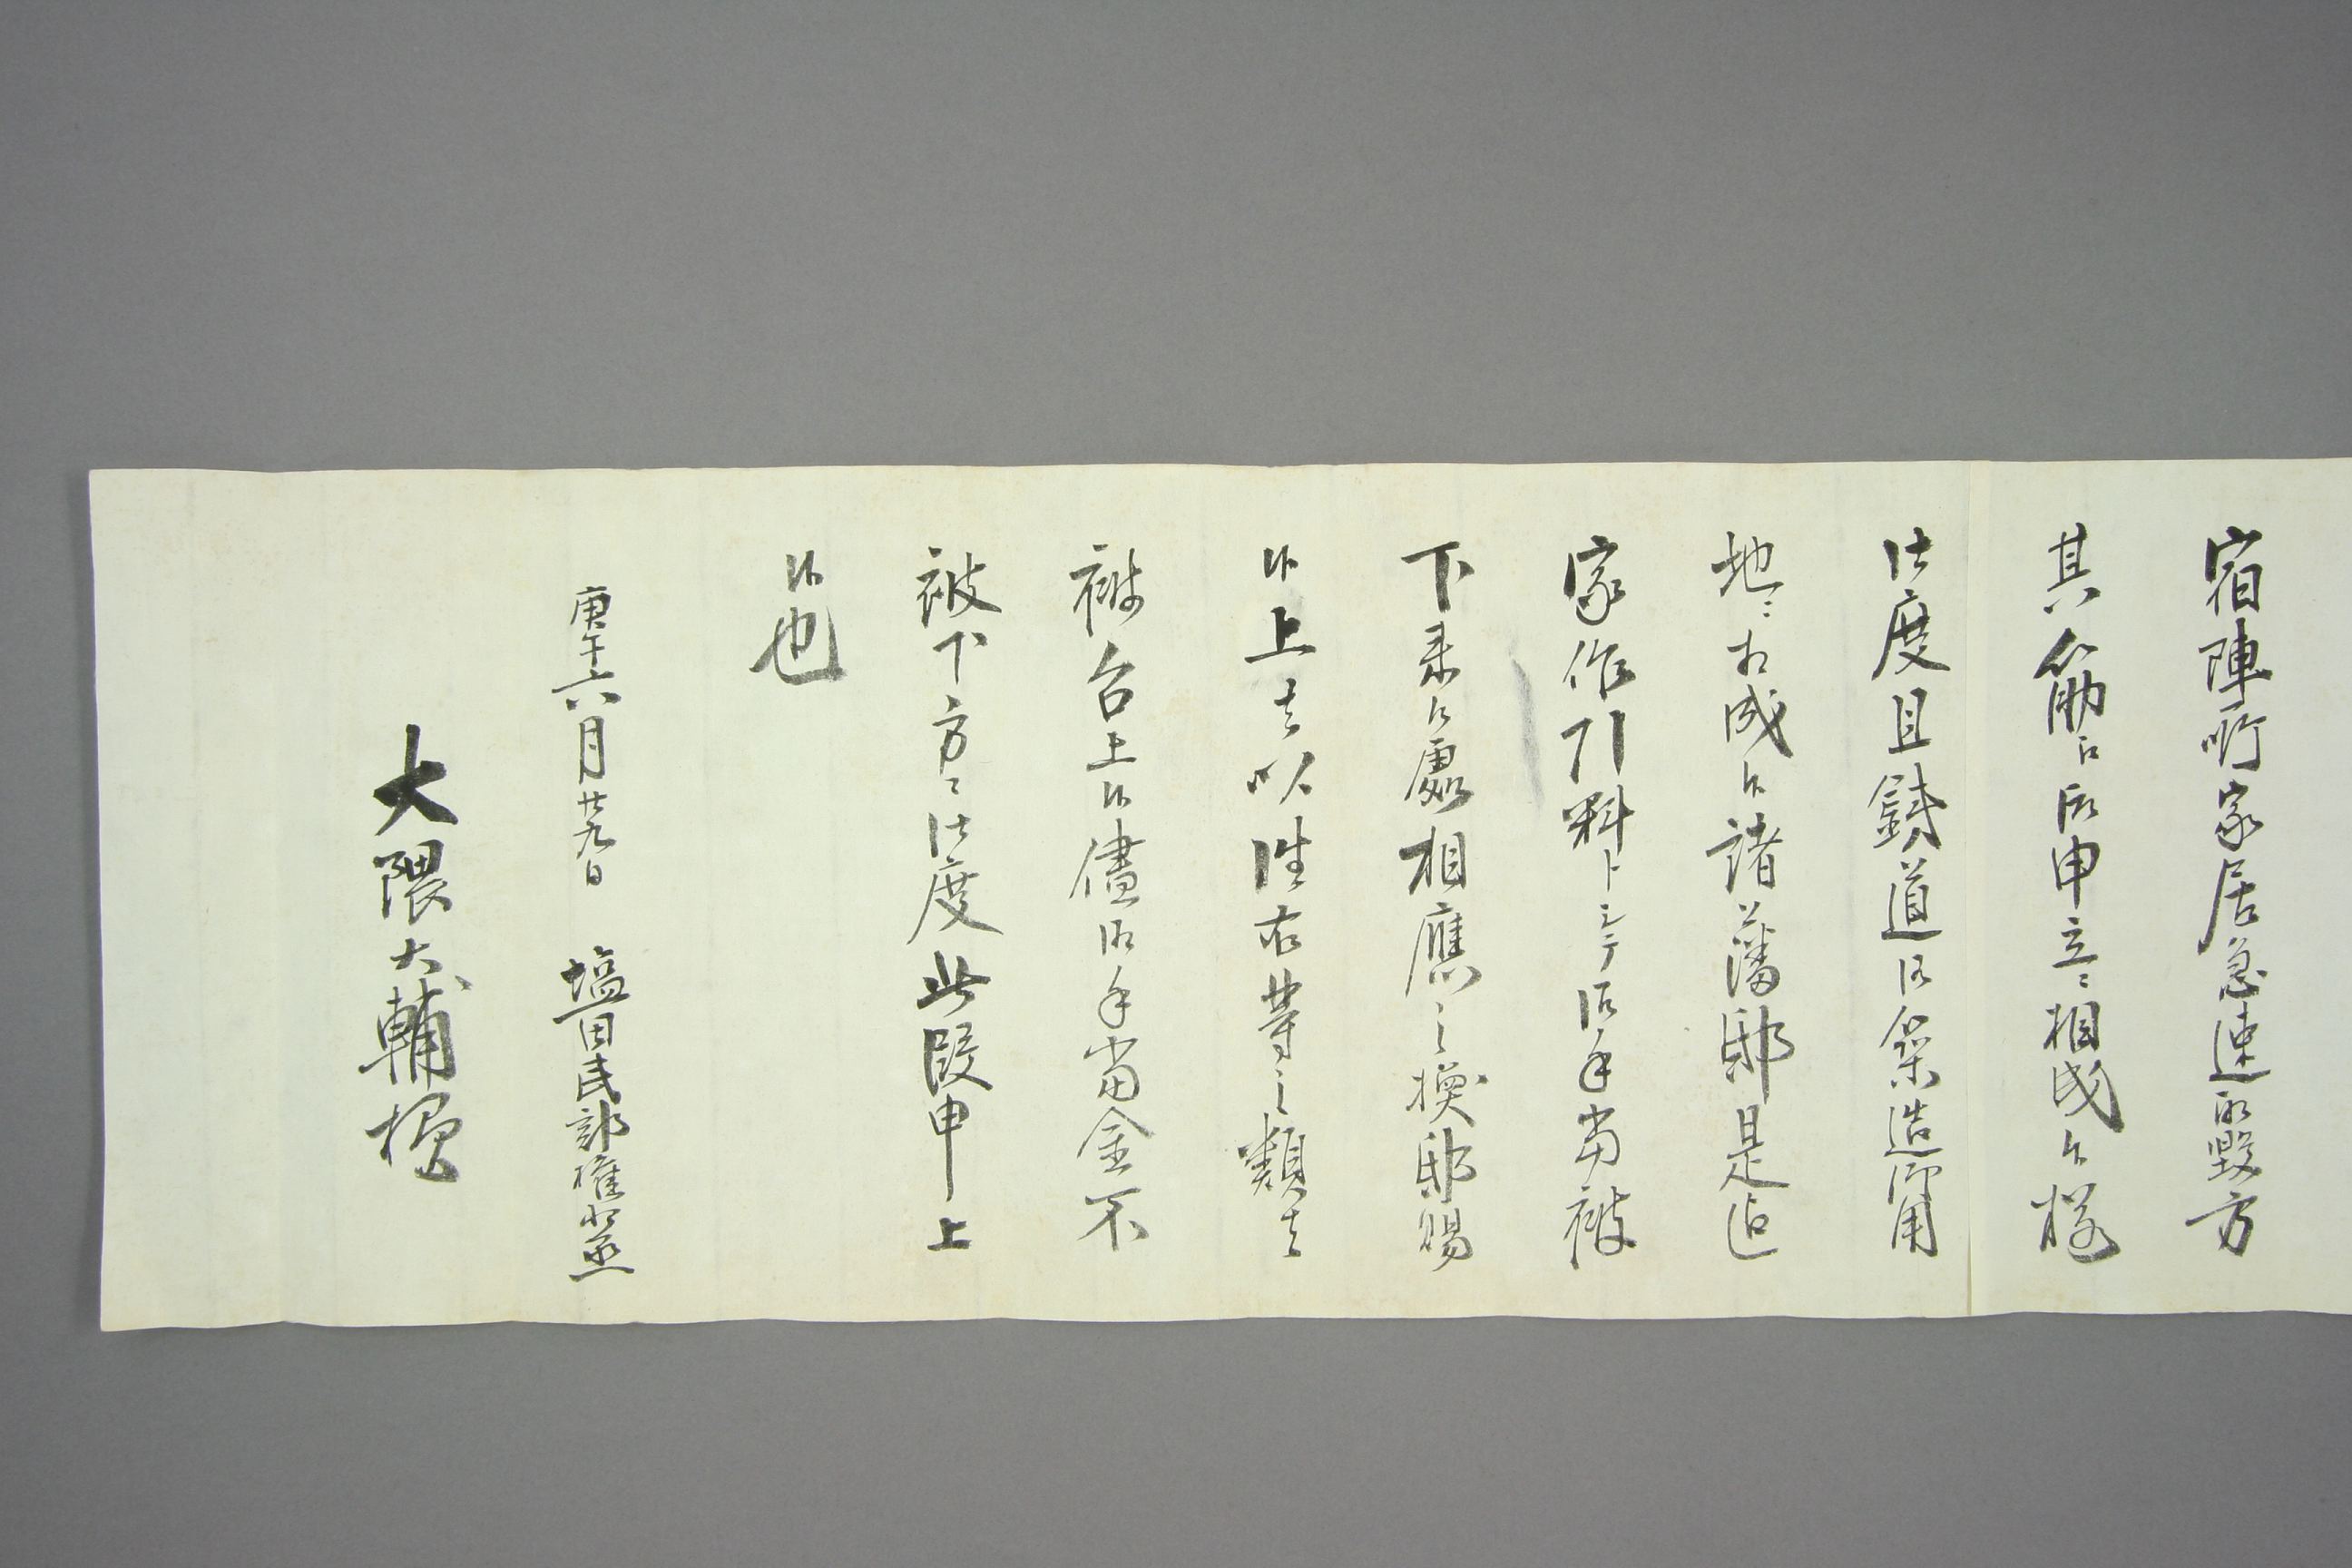 宿陣所家居急速取毀方
其筋江御申立ニ相成候様
仕度且鉄道御築造御用
地ニ相成候諸藩邸是迄
家作引料トシテ御手当被
下来候処相応之換邸賜
候上者以往右等之類者
被召上候儘御手当金不
被下方ニ仕度此段申上
候也
庚午六月廿九日 塩田民部権少丞
大隈大輔様